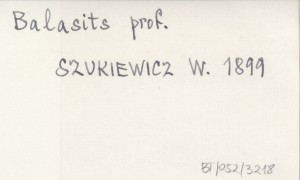 Balasits prof.
SZUKIEWICZ W. 1899
BJ/052/3218